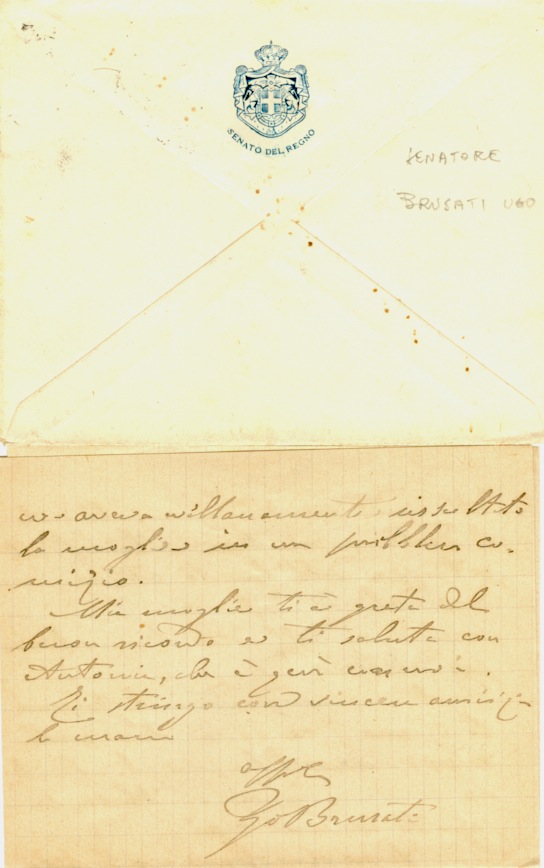 SENATO DEL REGNO
SENATORE
BRUSATI UGO
aveva villanamente insultato
la moglie in un pubblico co-
mizio.
Mia moglie ti è grata del
buon ricordo e ti saluta con
Antonio, che è
Ti stringo con sincera amicizia
la mano
Brusati